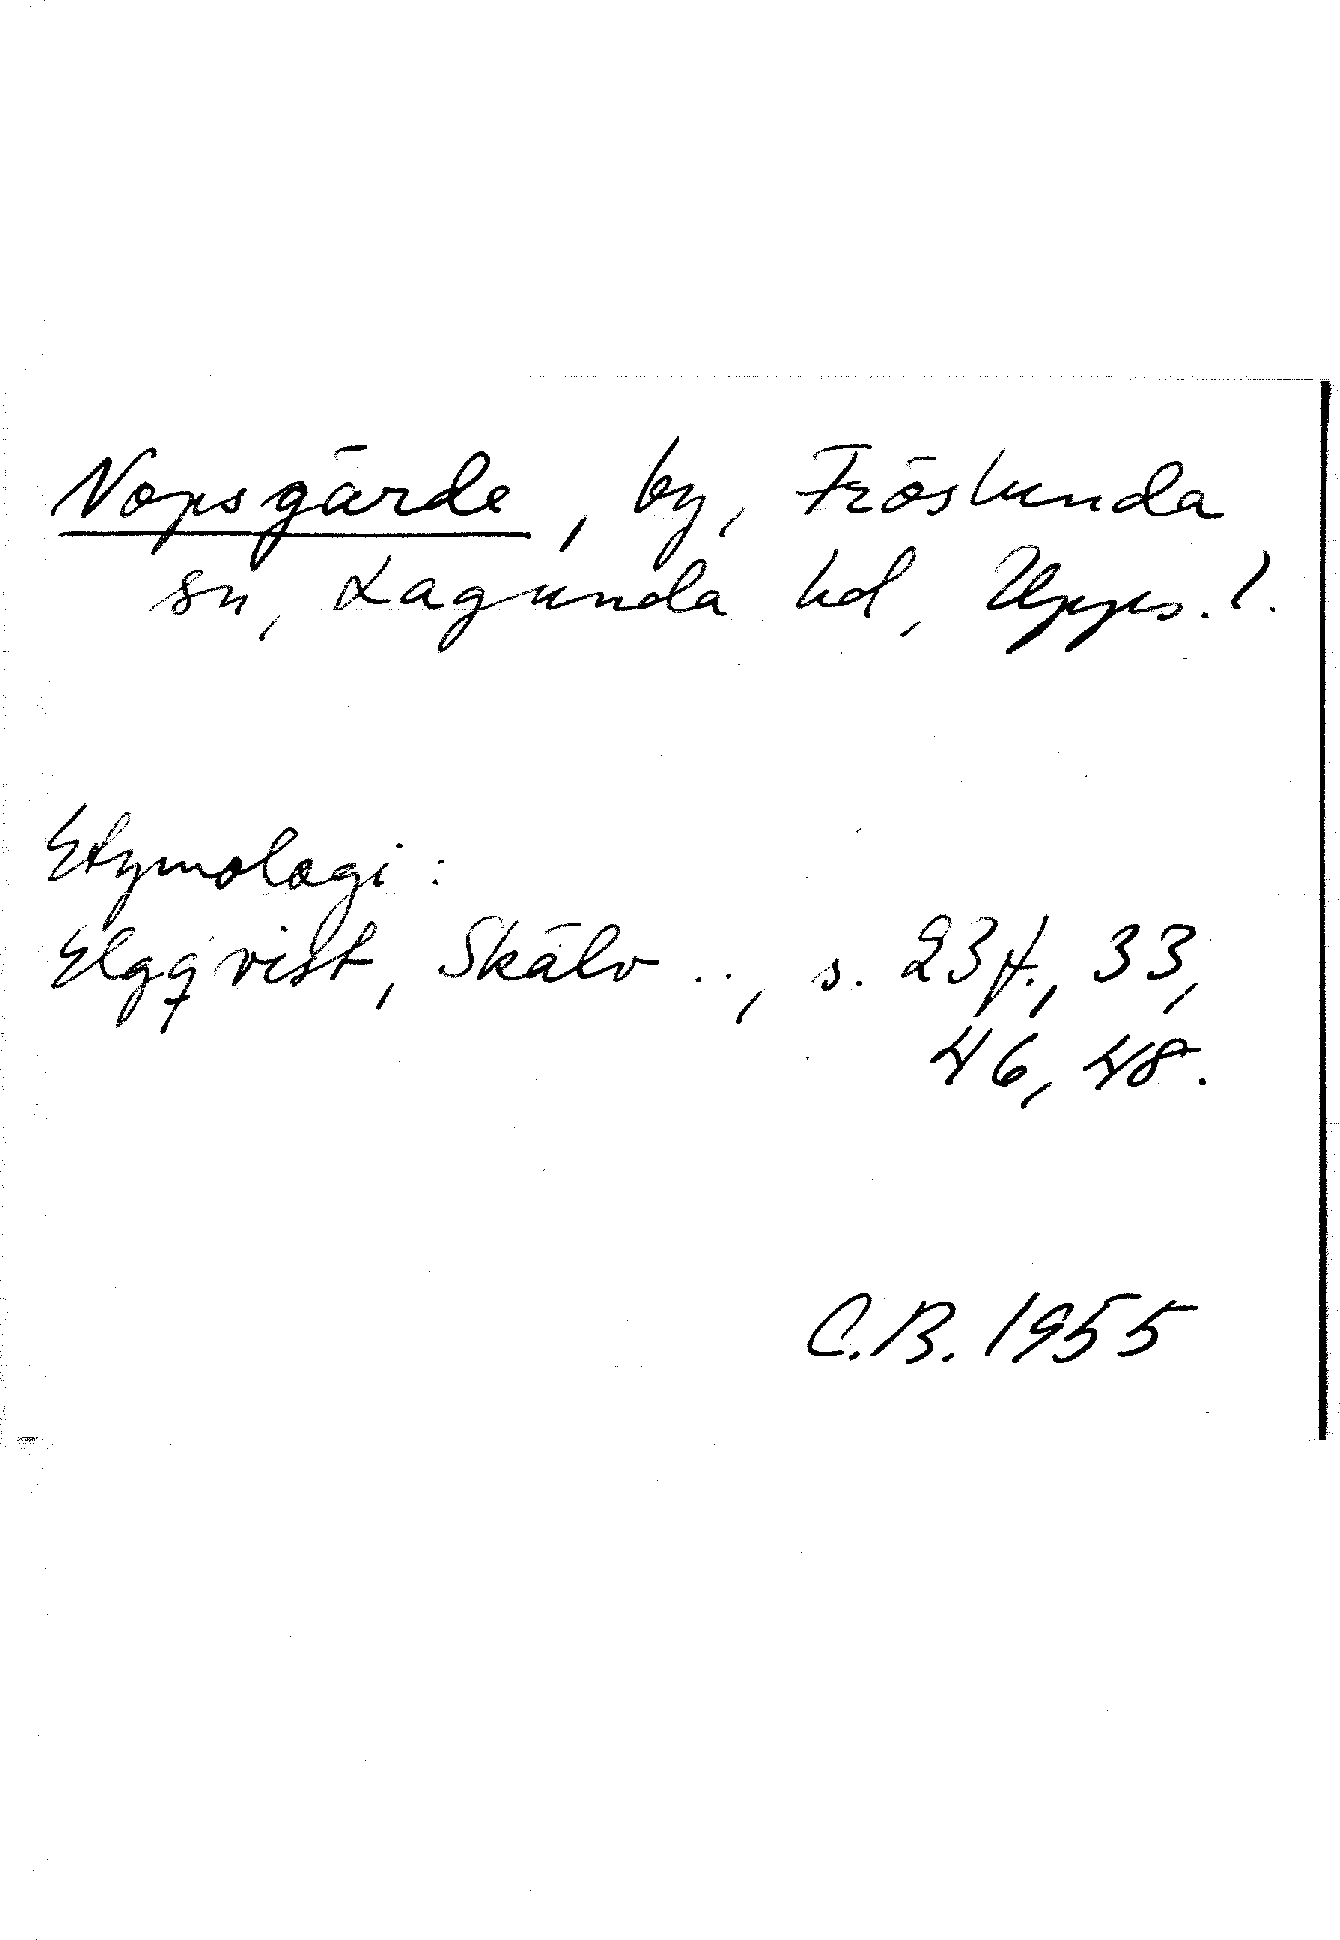 Nopsgärde, by, Fröslunda
sn, Lagunda hd, Upps. l.
Etymologi:
Elgqvist, Skälv .., s. 23 f., 33,
46, 48.
C.B. 1955